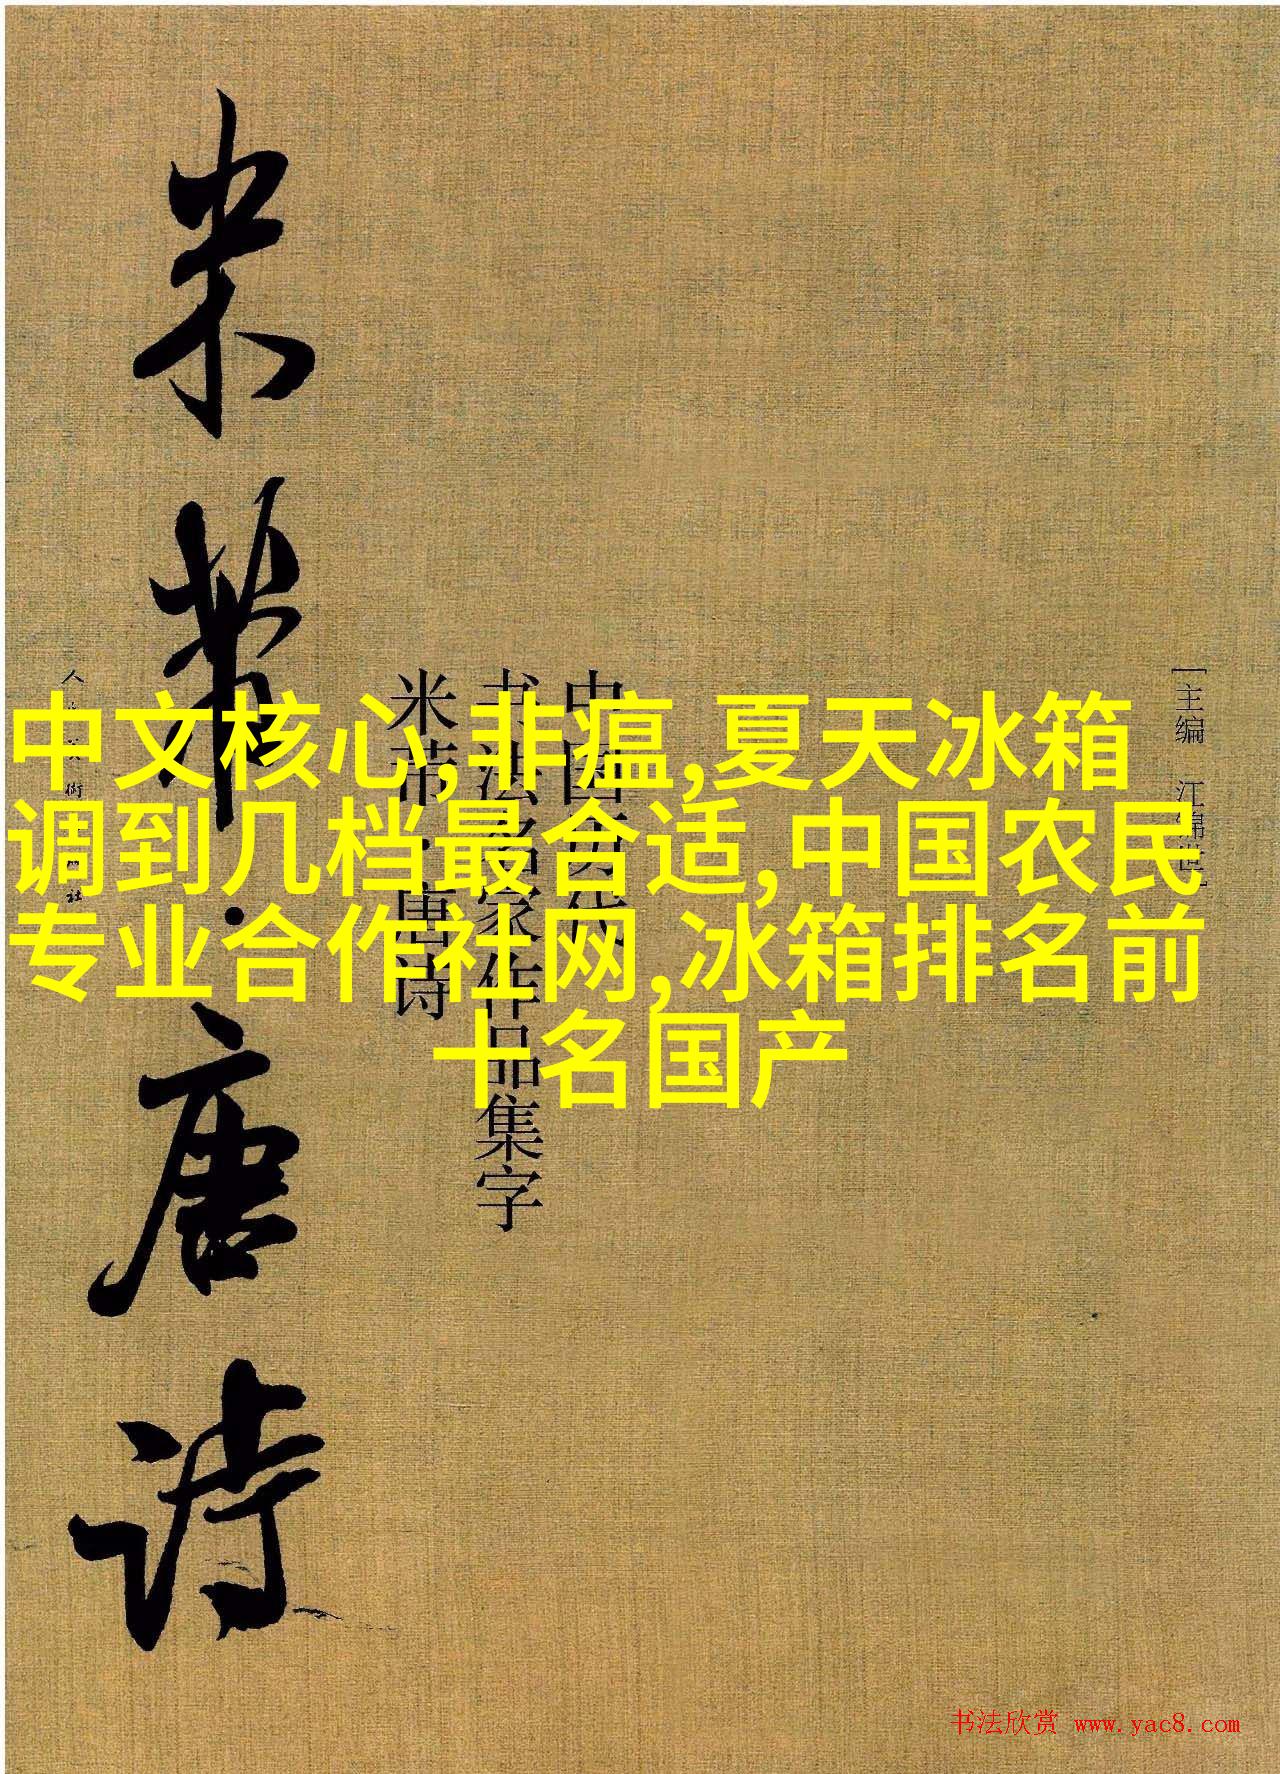 米芾·唐诗
中文核心,非瘟,夏天冰箱
调到几档最合适,中国农民
专业合作社网,冰箱排名前
十名国产
中国历代
书法名家作品集字
米芾·唐诗
[主编 江锦世]
书法欣赏 www.yac8.com